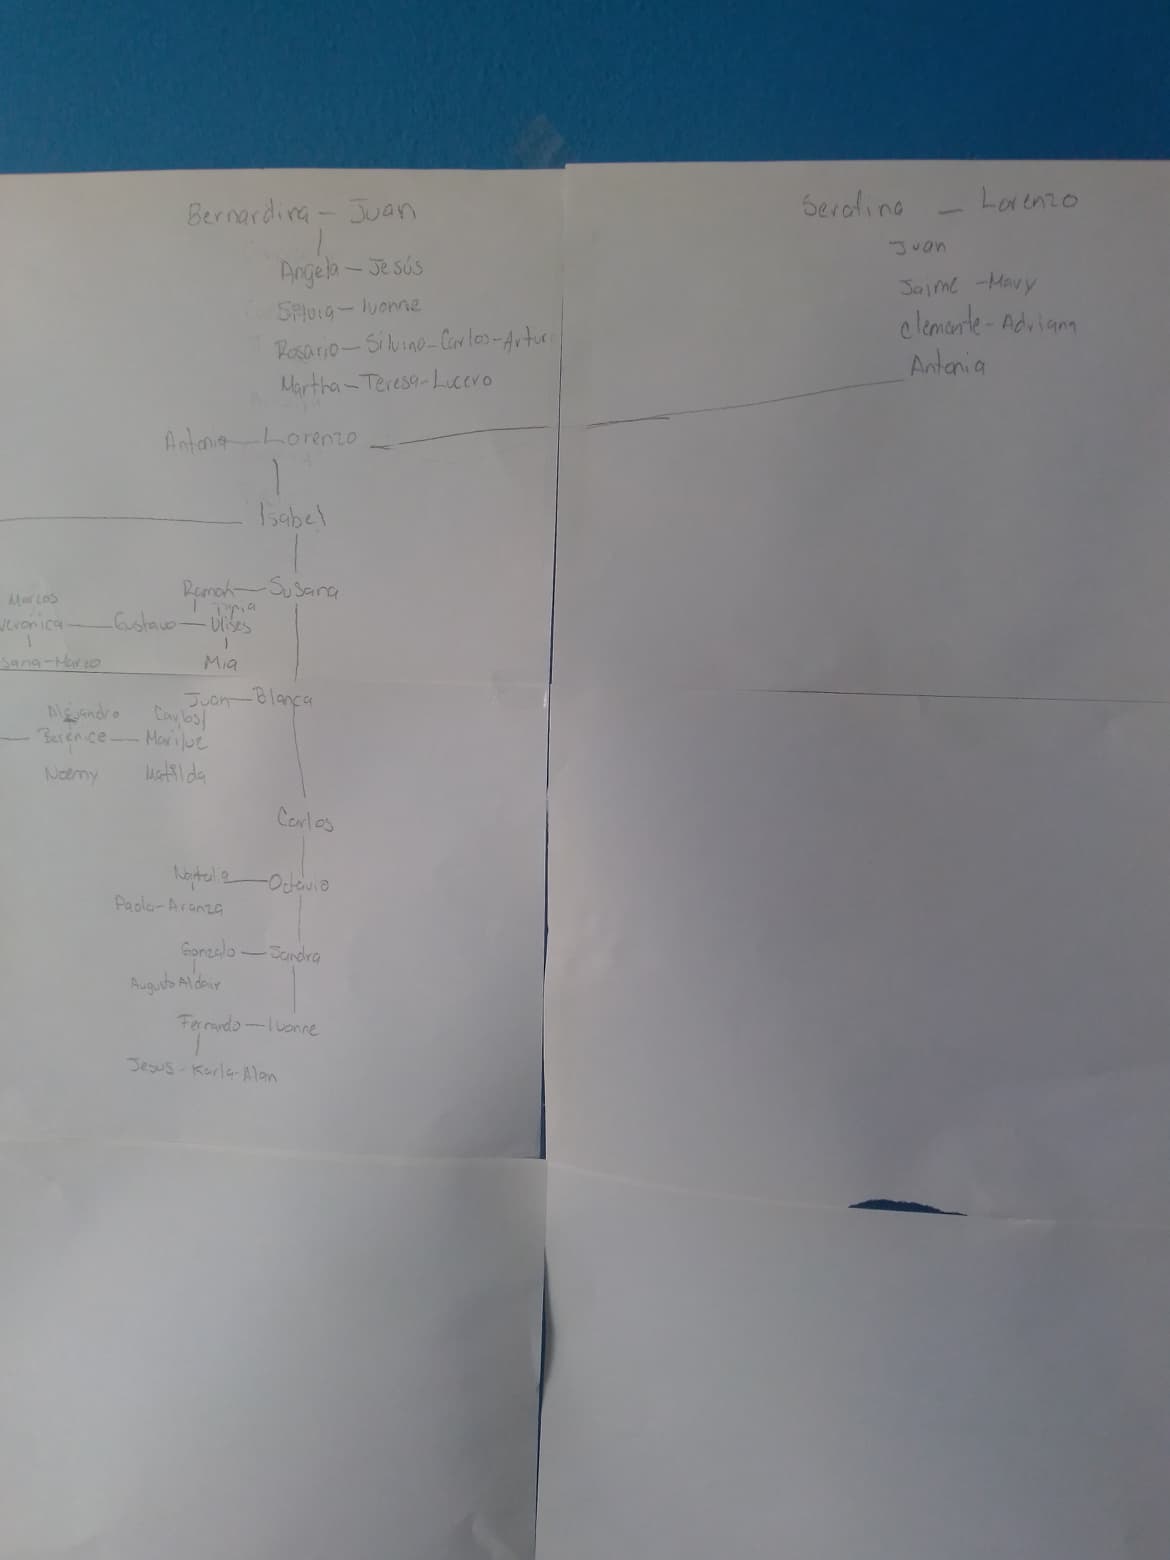 Bernardina - Juan
Angela - Jesús
Silvia - Ivonne
Rosario - Silvino - Carlos - Artur
Martha - Teresa - Lucero
Antonia - Lorenzo
Isabel
Ramon - Susana
Marcos
Veronica - Gustavo - Ulises
sana - Marco
Mia
Juan - Blanca
Alejandro Carlos
Berenice - Mariluz
Noemy Matilda
Carlos
Octavio
Paola - Aranza
Gonzalo - Sandra
Augusto Aldair
Fernando - Ivonne
Jesus - Karla - Alan
- Lorenzo
Juan
Jaime - Mavy
Clemente - Adriana
Antonia